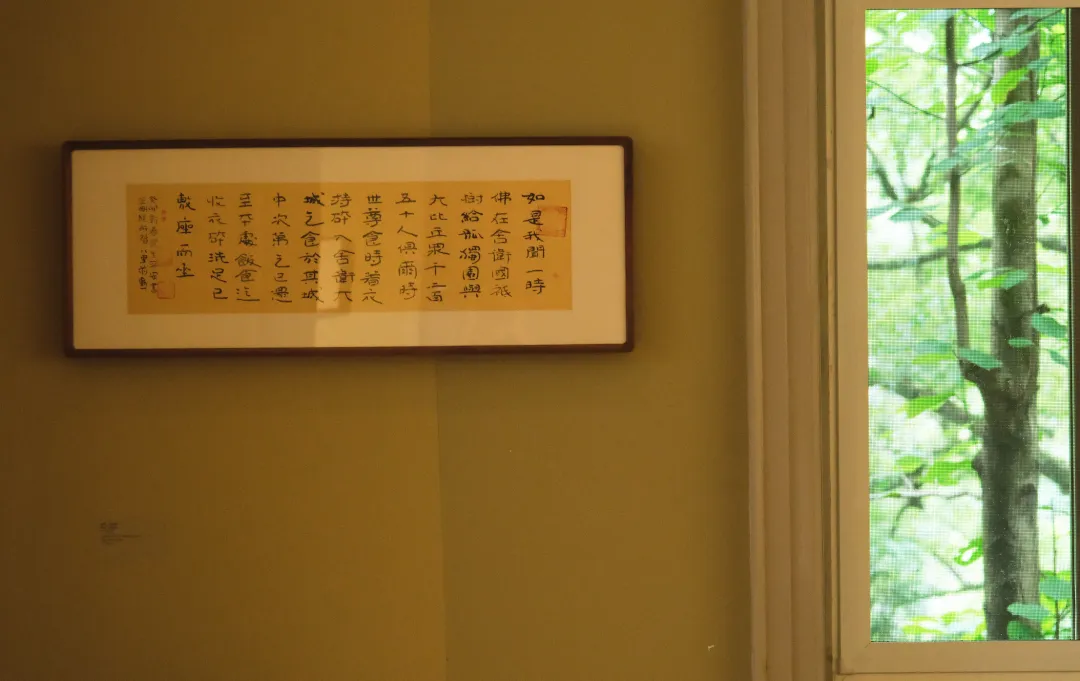 如是我聞一時
佛在舍衛國祇
樹給孤獨園與
大比丘眾千二百
五十人俱爾時
世尊食時著衣
持砵入舍衛大
城乞食於其城
中次第乞已還
至本處飯食訖
收衣砵洗足已
敷座而坐